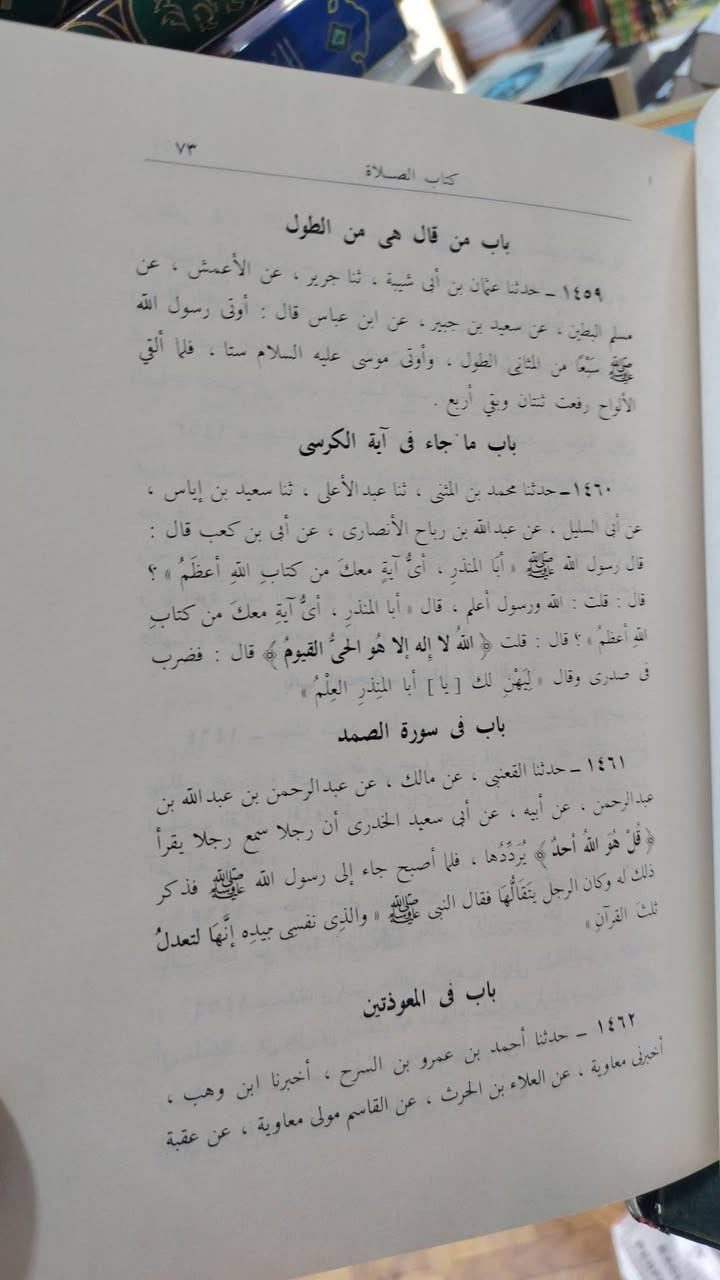 ٧٣
كتاب الصلاة
باب من قال هى من الطول
١٤٥٩ ــ حدثنا عثمان بن أبى شيبة ، ثنا جرير ، عن الأعمش ، عن
مسلم البطين ، عن سعيد بن جبير ، عن ابن عباس قال : أوتى رسول الله
ﷺ سَبْعًا من المثانى الطول ، وأوتى موسى عليه السلام ستا ، فلما ألقي
الألواح رفعت ثنتان وبقي أربع .
باب ما جاء فى آية الكرسى
١٤٦٠ ــ حدثنا محمد بن المثنى ، ثنا عبد الأعلى ، ثنا سعيد بن إياس ،
عن أبى السليل ، عن عبد الله بن رباح الأنصارى ، عن أبى بن كعب قال :
قال رسول الله ﷺ « أبَا المنذرِ ، أىُّ آيةٍ معكَ من كتابِ اللهِ أعظَمُ » ؟
قال : قلت : الله ورسول أعلم ، قال « أبا المنذرِ ، أىُّ آيةِ معكَ من كتابِ
اللهِ أعظمُ » ؟ قال : قلت ﴿ اللهُ لا إِله إلا هُو الحىُّ القيومُ ﴾ قال : فضرب
فى صدرى وقال « لِيَهْنِ لك [ يا ] أبا المنِذرِ العِلْمُ »
باب فى سورة الصمد
١٤٦١ ــ حدثنا القعنبى ، عن مالك ، عن عبد الرحمن بن عبد الله بن
عبد الرحمن ، عن أبيه ، عن أبى سعيد الخدرى أن رجلا سمع رجلا يقرأ
﴿ قُلْ هُوَ اللهُ أحدٌ ﴾ يُرَدِّدُها ، فلما أصبح جاء إلى رسول الله ﷺ فذكر
ذلك له وكان الرجل يتَقَالُّهَا فقال النبى ﷺ « والذِى نفسِى بيدِه إنَّهَا لتعدلُ
ثلثَ القرآنِ »
باب فى المعوذتين
١٤٦٢ ــ حدثنا أحمد بن عمرو بن السرح ، أخبرنا ابن وهب ،
أخبرنى معاوية ، عن العلاء بن الحرث ، عن القاسم مولى معاوية ، عن عقبة